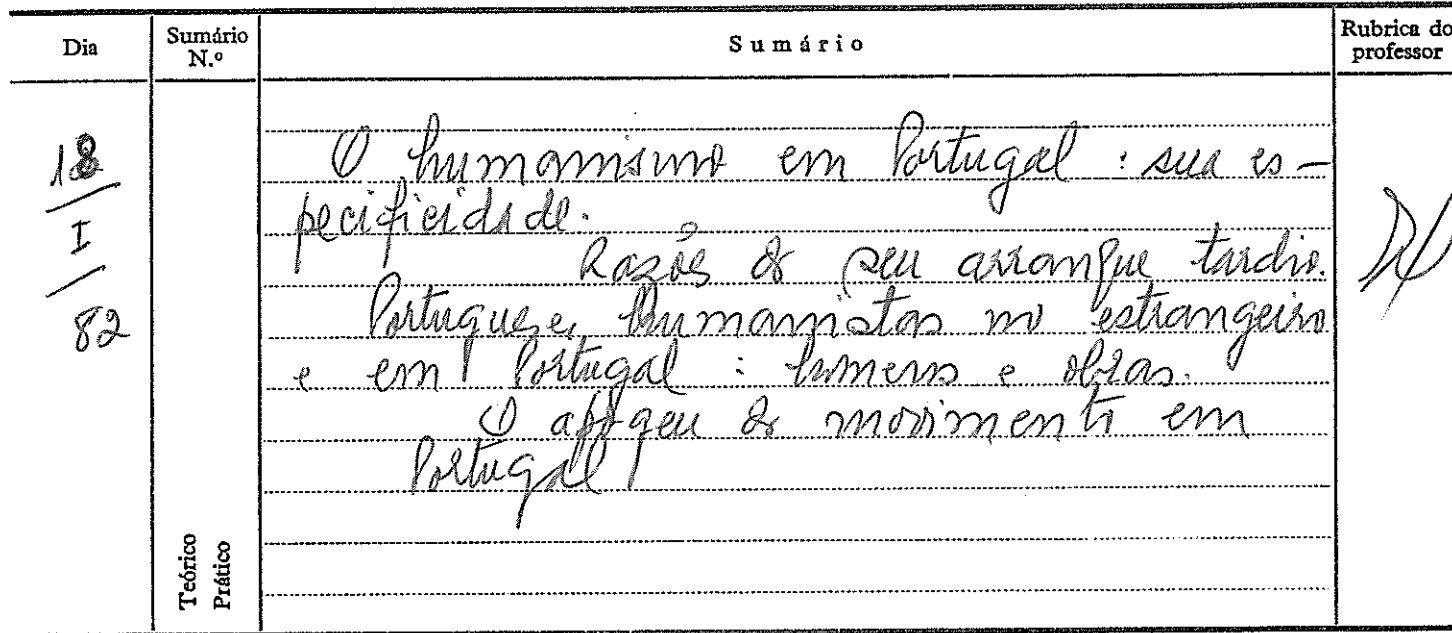 Dia
Sumário N.º
Sumário
Rubrica do professor
18
I
82
O humanismo em Portugal : sua es-
pecificidade.
Razões do seu arranque tardio.
Portugueses humanistas no estrangeiro
e em Portugal : homens e obras.
O apogeu do movimento em
Portugal
Teórico
Prático